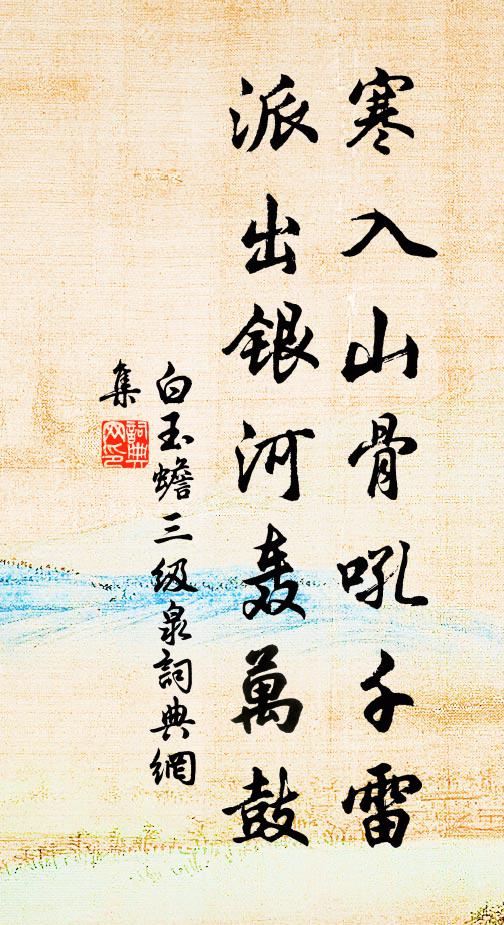 寒入山骨吼千雷
派出银河轰萬鼓
白玉蟾三级泉詞典網
集
詞典網印